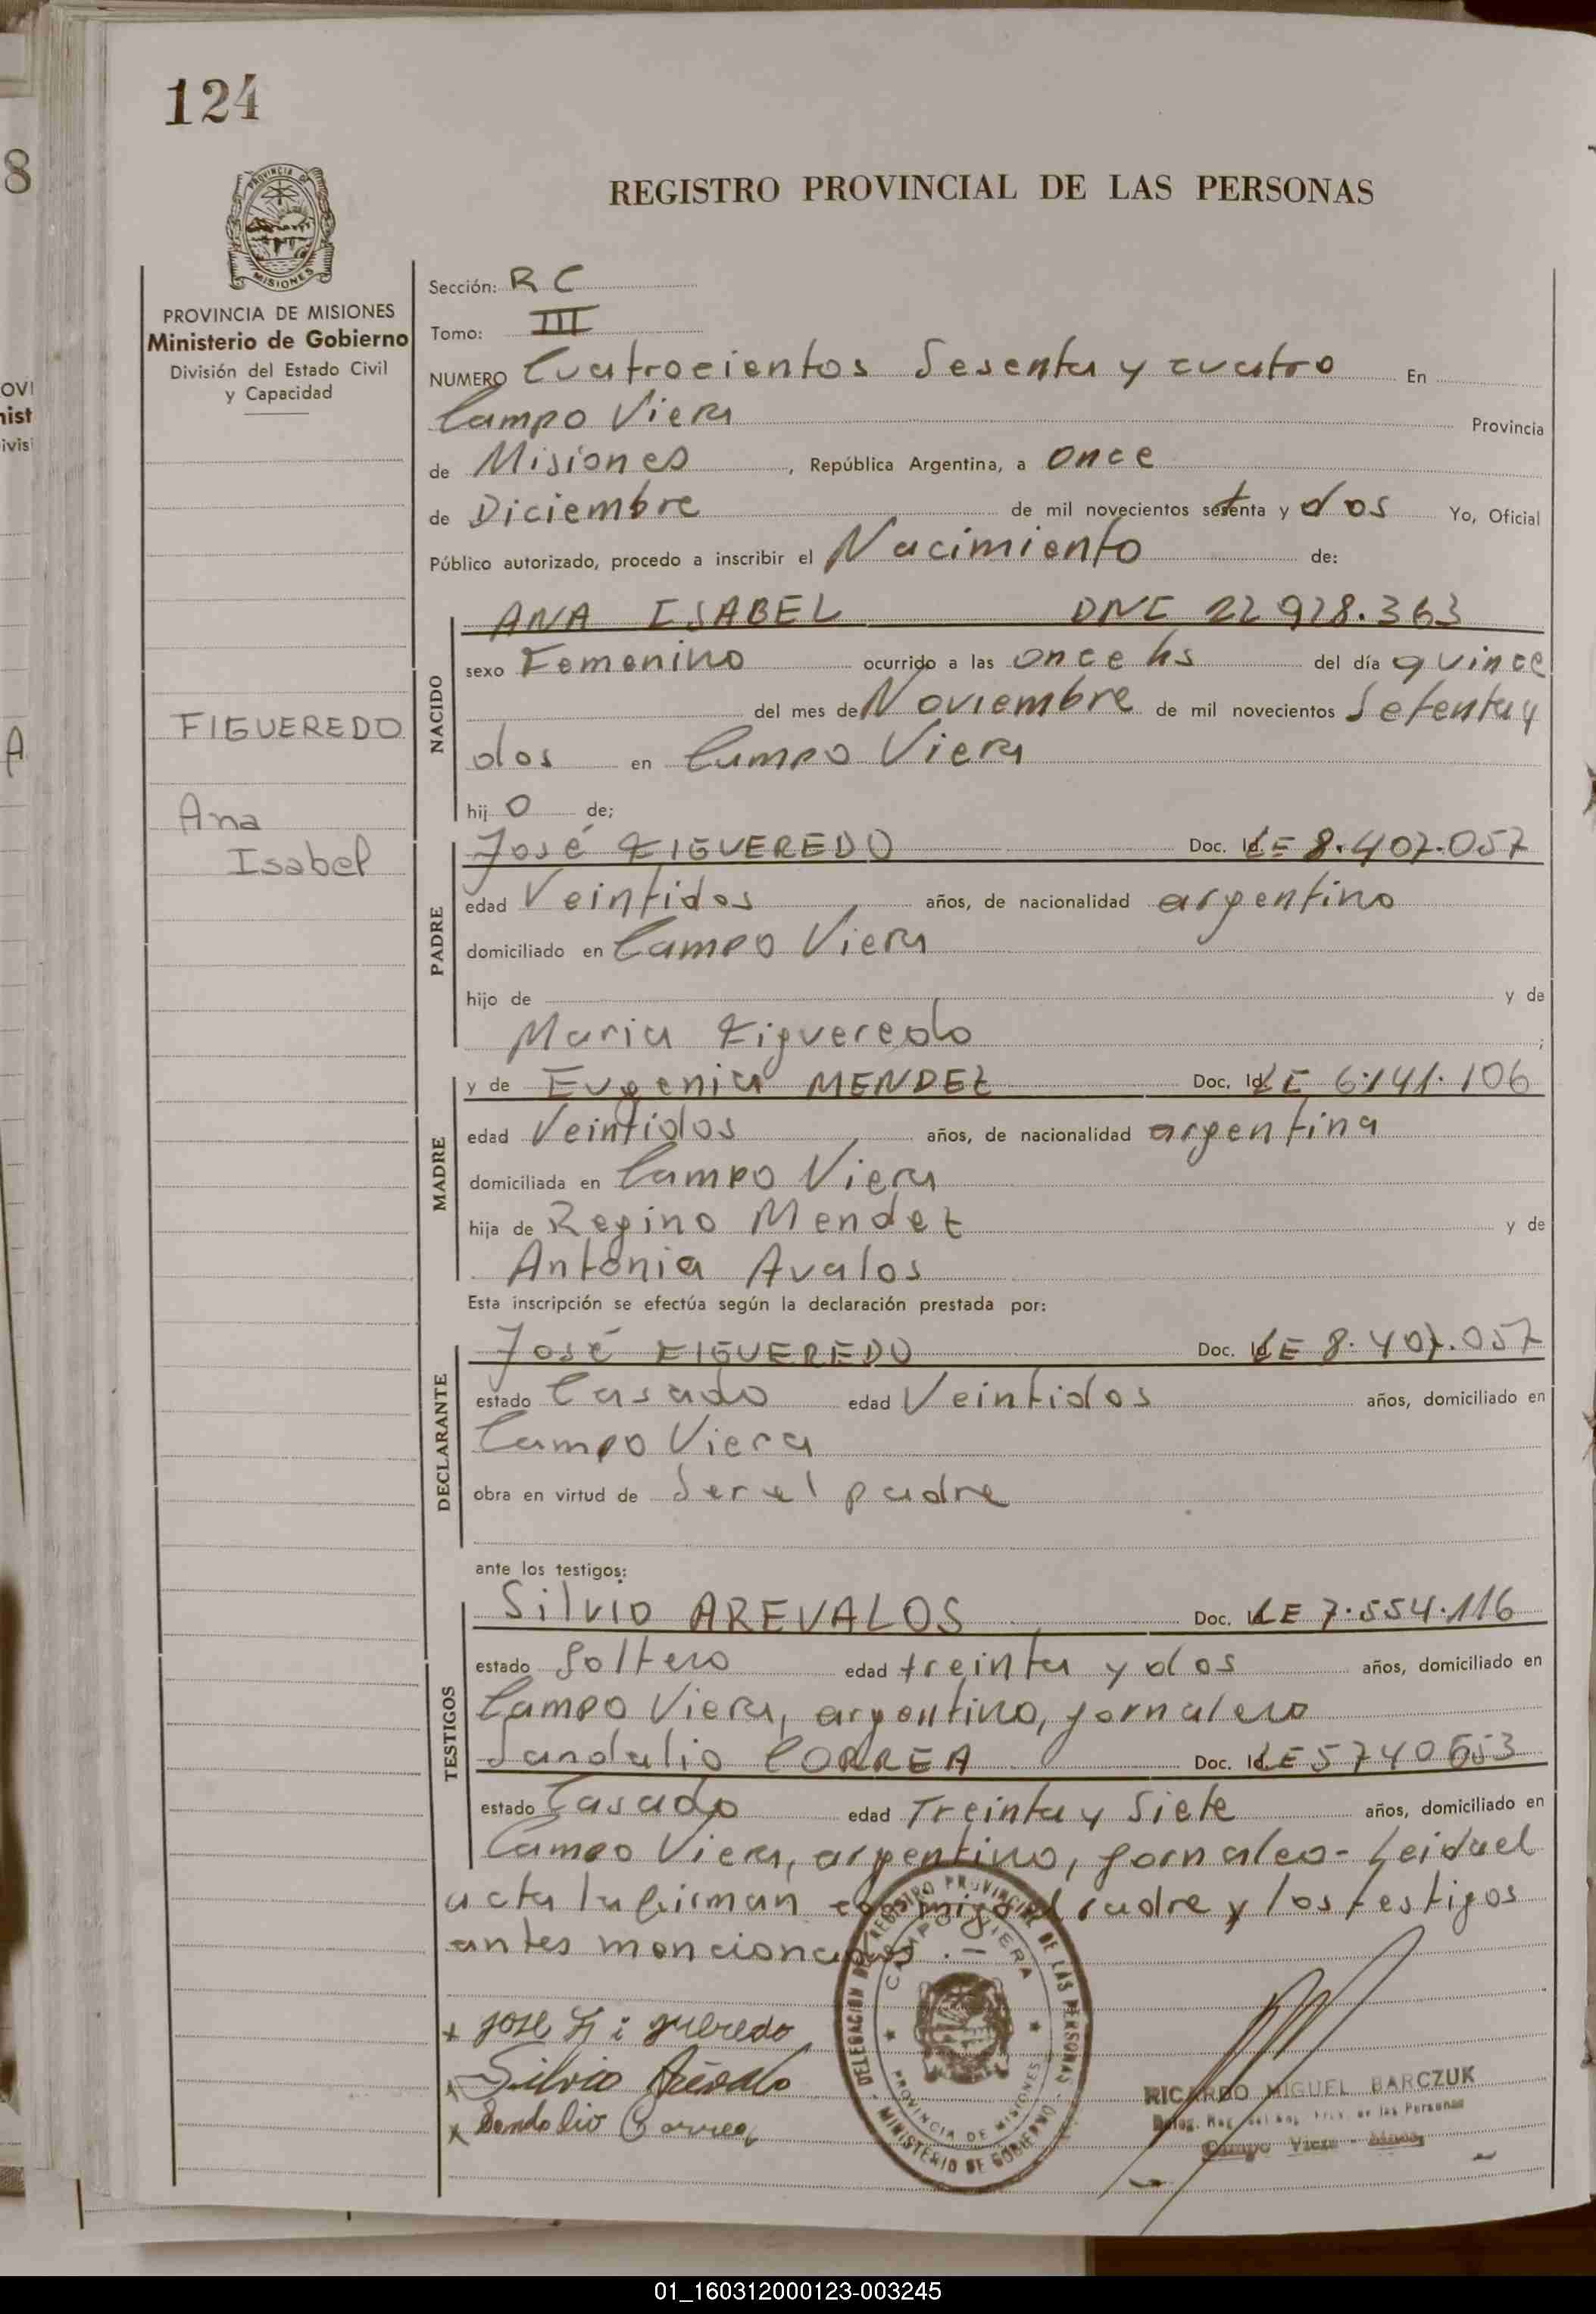 124
8
REGISTRO PROVINCIAL DE LAS PERSONAS
PROVINCIA DE MISIONES
PROVINCIA DE MISIONES
Ministerio de Gobierno
División del Estado Civil
y Capacidad
FIGUEREDO
Ana
Isabel
Sección: R C
Tomo: III
NUMERO Cuatrocientos Sesenta y cuatro En
Campo Viera Provincia
de Misiones, República Argentina, a once
de Diciembre de mil novecientos setenta y dos Yo, Oficial
Público autorizado, procedo a inscribir el Nacimiento de:
NACIDO
ANA ISABEL DNI 22 928.363
sexo Femenino ocurrido a las once hs del día quince
del mes de Noviembre de mil novecientos Setenta y
dos en Campo Viera
hij o de;
PADRE
José FIGUEREDO Doc. Id. LE 8.407.057
edad Veintidos años, de nacionalidad argentino
domiciliado en Campo Viera
hijo de y de
Maria Figueredo ;
MADRE
y de Eugenia MENDEZ Doc. Id. LE 6.141.106
edad Veintidos años, de nacionalidad argentina
domiciliada en Campo Viera
hija de Regino Mendez y de
Antonia Avalos
Esta inscripción se efectúa según la declaración prestada por:
DECLARANTE
José FIGUEREDO Doc. Id. LE 8.407.057
estado Casado edad Veintidos años, domiciliado en
Campo Viera
obra en virtud de Ser el padre
ante los testigos:
TESTIGOS
Silvio AREVALOS Doc. Id. LE 7.554.116
estado Soltero edad treinta y dos años, domiciliado en
Campo Viera, argentino, jornalero
Sandalio CORREA Doc. Id. LE 5740653
estado Casado edad Treinta y Siete años, domiciliado en
Campo Viera, argentino, jornaleo- Leida el
acta la firman conmigo el padre y los testigos
antes mencionados.-
x jose Figueredo
x Silvio Arévalo
x Sandalio Correa
DELEGACION DEL REGISTRO PROVINCIAL DE LAS PERSONAS
CAMPO VIERA
PROVINCIA DE MISIONES
MINISTERIO DE GOBIERNO
RICARDO MIGUEL BARCZUK
Campo Viera - Mnes.
01_160312000123-003245